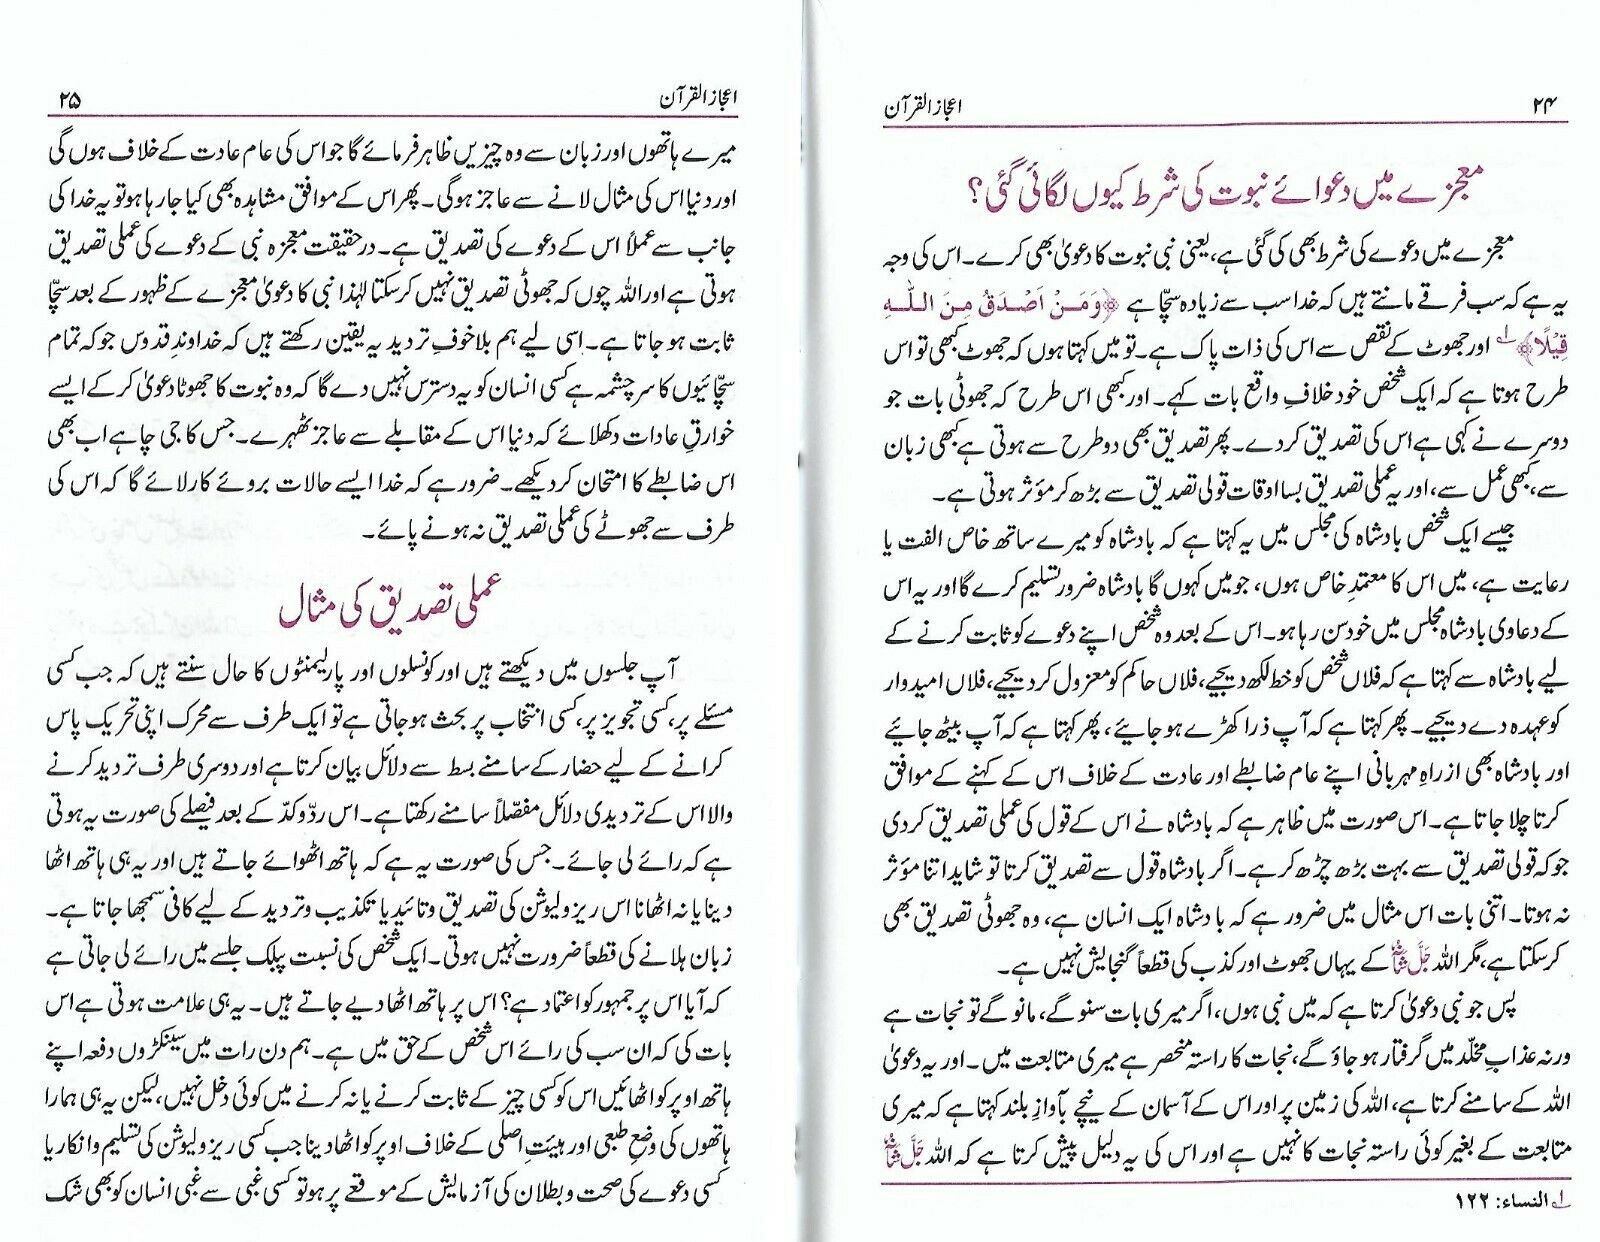 ۲۴ اعجاز القرآن
معجزے میں دعوائے نبوت کی شرط کیوں لگائی گئی؟
معجزے میں دعوے کی شرط بھی کی گئی ہے، یعنی نبی نبوت کا دعویٰ بھی کرے۔ اس کی وجہ
یہ ہے کہ سب فرقے مانتے ہیں کہ خدا سب سے زیادہ سچا ہے ﴿وَمَنْ اَصْدَقُ مِنَ اللّٰهِ
قِيْلًا﴾ ؂۱ اور جھوٹ کے نقص سے اس کی ذات پاک ہے۔ تو میں کہتا ہوں کہ جھوٹ کبھی تو اس
طرح ہوتا ہے کہ ایک شخص خود خلافِ واقع بات کہے۔ اور کبھی اس طرح کہ جھوٹی بات جو
دوسرے نے کہی ہے اس کی تصدیق کردے۔ پھر تصدیق بھی دو طرح سے ہوتی ہے کبھی زبان
سے، کبھی عمل سے، اور یہ عملی تصدیق بسا اوقات قولی تصدیق سے بڑھ کر مؤثر ہوتی ہے۔
جیسے ایک شخص بادشاہ کی مجلس میں یہ کہتا ہے کہ بادشاہ کو میرے ساتھ خاص الفت یا
رعایت ہے، میں اس کا معتمدِ خاص ہوں، جو میں کہوں گا بادشاہ ضرور تسلیم کرے گا اور یہ اس
کے دعاوی بادشاہ مجلس میں خود سن رہا ہو۔ اس کے بعد وہ شخص اپنے دعوے کو ثابت کرنے کے
لیے بادشاہ سے کہتا ہے کہ فلاں شخص کو خط لکھ دیجیے، فلاں حاکم کو معزول کر دیجیے، فلاں امیدوار
کو عہدہ دے دیجیے۔ پھر کہتا ہے کہ آپ ذرا کھڑے ہو جائیے، پھر کہتا ہے کہ آپ بیٹھ جائیے
اور بادشاہ بھی از راہِ مہربانی اپنے عام ضابطے اور عادت کے خلاف اس کے کہنے کے موافق
کرتا چلا جاتا ہے۔ اس صورت میں ظاہر ہے کہ بادشاہ نے اس کے قول کی عملی تصدیق کردی
جو کہ قولی تصدیق سے بہت بڑھ چڑھ کر ہے۔ اگر بادشاہ قول سے تصدیق کرتا تو شاید اتنا مؤثر
نہ ہوتا۔ اتنی بات اس مثال میں ضرور ہے کہ بادشاہ ایک انسان ہے، وہ جھوٹی تصدیق بھی
کرسکتا ہے، مگر اللہ جَلَّ شَانُہٗ کے یہاں جھوٹ اور کذب کی قطعاً گنجایش نہیں ہے۔
پس جو نبی دعویٰ کرتا ہے کہ میں نبی ہوں، اگر میری بات سنو گے، مانو گے تو نجات ہے
ورنہ عذابِ مخلّد میں گرفتار ہو جاؤ گے، نجات کا راستہ منحصر ہے میری متابعت میں۔ اور یہ دعویٰ
اللہ کے سامنے کرتا ہے، اللہ کی زمین پر اور اس کے آسمان کے نیچے بآوازِ بلند کہتا ہے کہ میری
متابعت کے بغیر کوئی راستہ نجات کا نہیں ہے اور اس کی یہ دلیل پیش کرتا ہے کہ اللہ جَلَّ شَانُہٗ
؂۱ النساء: ۱۲۲
اعجاز القرآن ۲۵
میرے ہاتھوں اور زبان سے وہ چیزیں ظاہر فرمائے گا جو اس کی عام عادت کے خلاف ہوں گی
اور دنیا اس کی مثال لانے سے عاجز ہوگی۔ پھر اس کے موافق مشاہدہ بھی کیا جا رہا ہو تو یہ خدا کی
جانب سے عملاً اس کے دعوے کی تصدیق ہے۔ درحقیقت معجزہ نبی کے دعوے کی عملی تصدیق
ہوتی ہے اور اللہ چوں کہ جھوٹی تصدیق نہیں کرسکتا لہٰذا نبی کا دعویٰ معجزے کے ظہور کے بعد سچّا
ثابت ہو جاتا ہے۔ اسی لیے ہم بلاخوفِ تردید یہ یقین رکھتے ہیں کہ خداوندِ قدوس جو کہ تمام
سچّائیوں کا سرچشمہ ہے کسی انسان کو یہ دسترس نہیں دے گا کہ وہ نبوت کا جھوٹا دعویٰ کرکے ایسے
خوارقِ عادات دکھلائے کہ دنیا اس کے مقابلے سے عاجز ٹھہرے۔ جس کا جی چاہے اب بھی
اس ضابطے کا امتحان کر دیکھے۔ ضرور ہے کہ خدا ایسے حالات بروئے کار لائے گا کہ اس کی
طرف سے جھوٹے کی عملی تصدیق نہ ہونے پائے۔
عملی تصدیق کی مثال
آپ جلسوں میں دیکھتے ہیں اور کونسلوں اور پارلیمنٹوں کا حال سنتے ہیں کہ جب کسی
مسئلے پر، کسی تجویز پر، کسی انتخاب پر بحث ہوجاتی ہے تو ایک طرف سے محرک اپنی تحریک پاس
کرانے کے لیے حضار کے سامنے بسط سے دلائل بیان کرتا ہے اور دوسری طرف تردید کرنے
والا اس کے تردیدی دلائل مفصّلاً سامنے رکھتا ہے۔ اس ردّوکدّ کے بعد فیصلے کی صورت یہ ہوتی
ہے کہ رائے لی جائے۔ جس کی صورت یہ ہے کہ ہاتھ اٹھوائے جاتے ہیں اور یہ ہی ہاتھ اٹھا
دینا یا نہ اٹھانا اس ریزولیوشن کی تصدیق وتائید یا تکذیب وتردید کے لیے کافی سمجھا جاتا ہے۔
زبان ہلانے کی قطعاً ضرورت نہیں ہوتی۔ ایک شخص کی نسبت پبلک جلسے میں رائے لی جاتی ہے
کہ آیا اس پر جمہور کو اعتماد ہے؟ اس پر ہاتھ اٹھا دیے جاتے ہیں۔ یہ ہی علامت ہوتی ہے اس
بات کی کہ ان سب کی رائے اس شخص کے حق میں ہے۔ ہم دن رات میں سینکڑوں دفعہ اپنے
ہاتھ اوپر کو اٹھائیں اس کو کسی چیز کے ثابت کرنے یا نہ کرنے میں کوئی دخل نہیں، لیکن یہ ہی ہمارا
ہاتھوں کی وضعِ طبعی اور ہیئتِ اصلی کے خلاف اوپر کو اٹھا دینا جب کسی ریزولیوشن کی تسلیم وانکار یا
کسی دعوے کی صحت وبطلان کی آزمایش کے موقعے پر ہو تو کسی غبی سے غبی انسان کو بھی شک